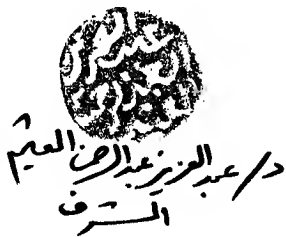 د/ عبد العزيز عبد الرحمن العثيم
المشرف